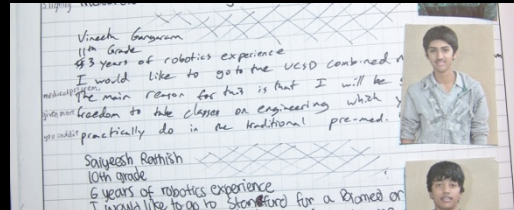 Vineeth Gangaram
11th Grade
3 years of robotics experience
I would like to go to the UCSD combined
medical program. The main reason for this is that I will be
given more freedom to take classes on engineering which
you couldn't practically do in the traditional pre-med.
Saiyeesh Rathish
10th grade
6 years of robotics experience
I would like to go to Stanford for a Biomed or